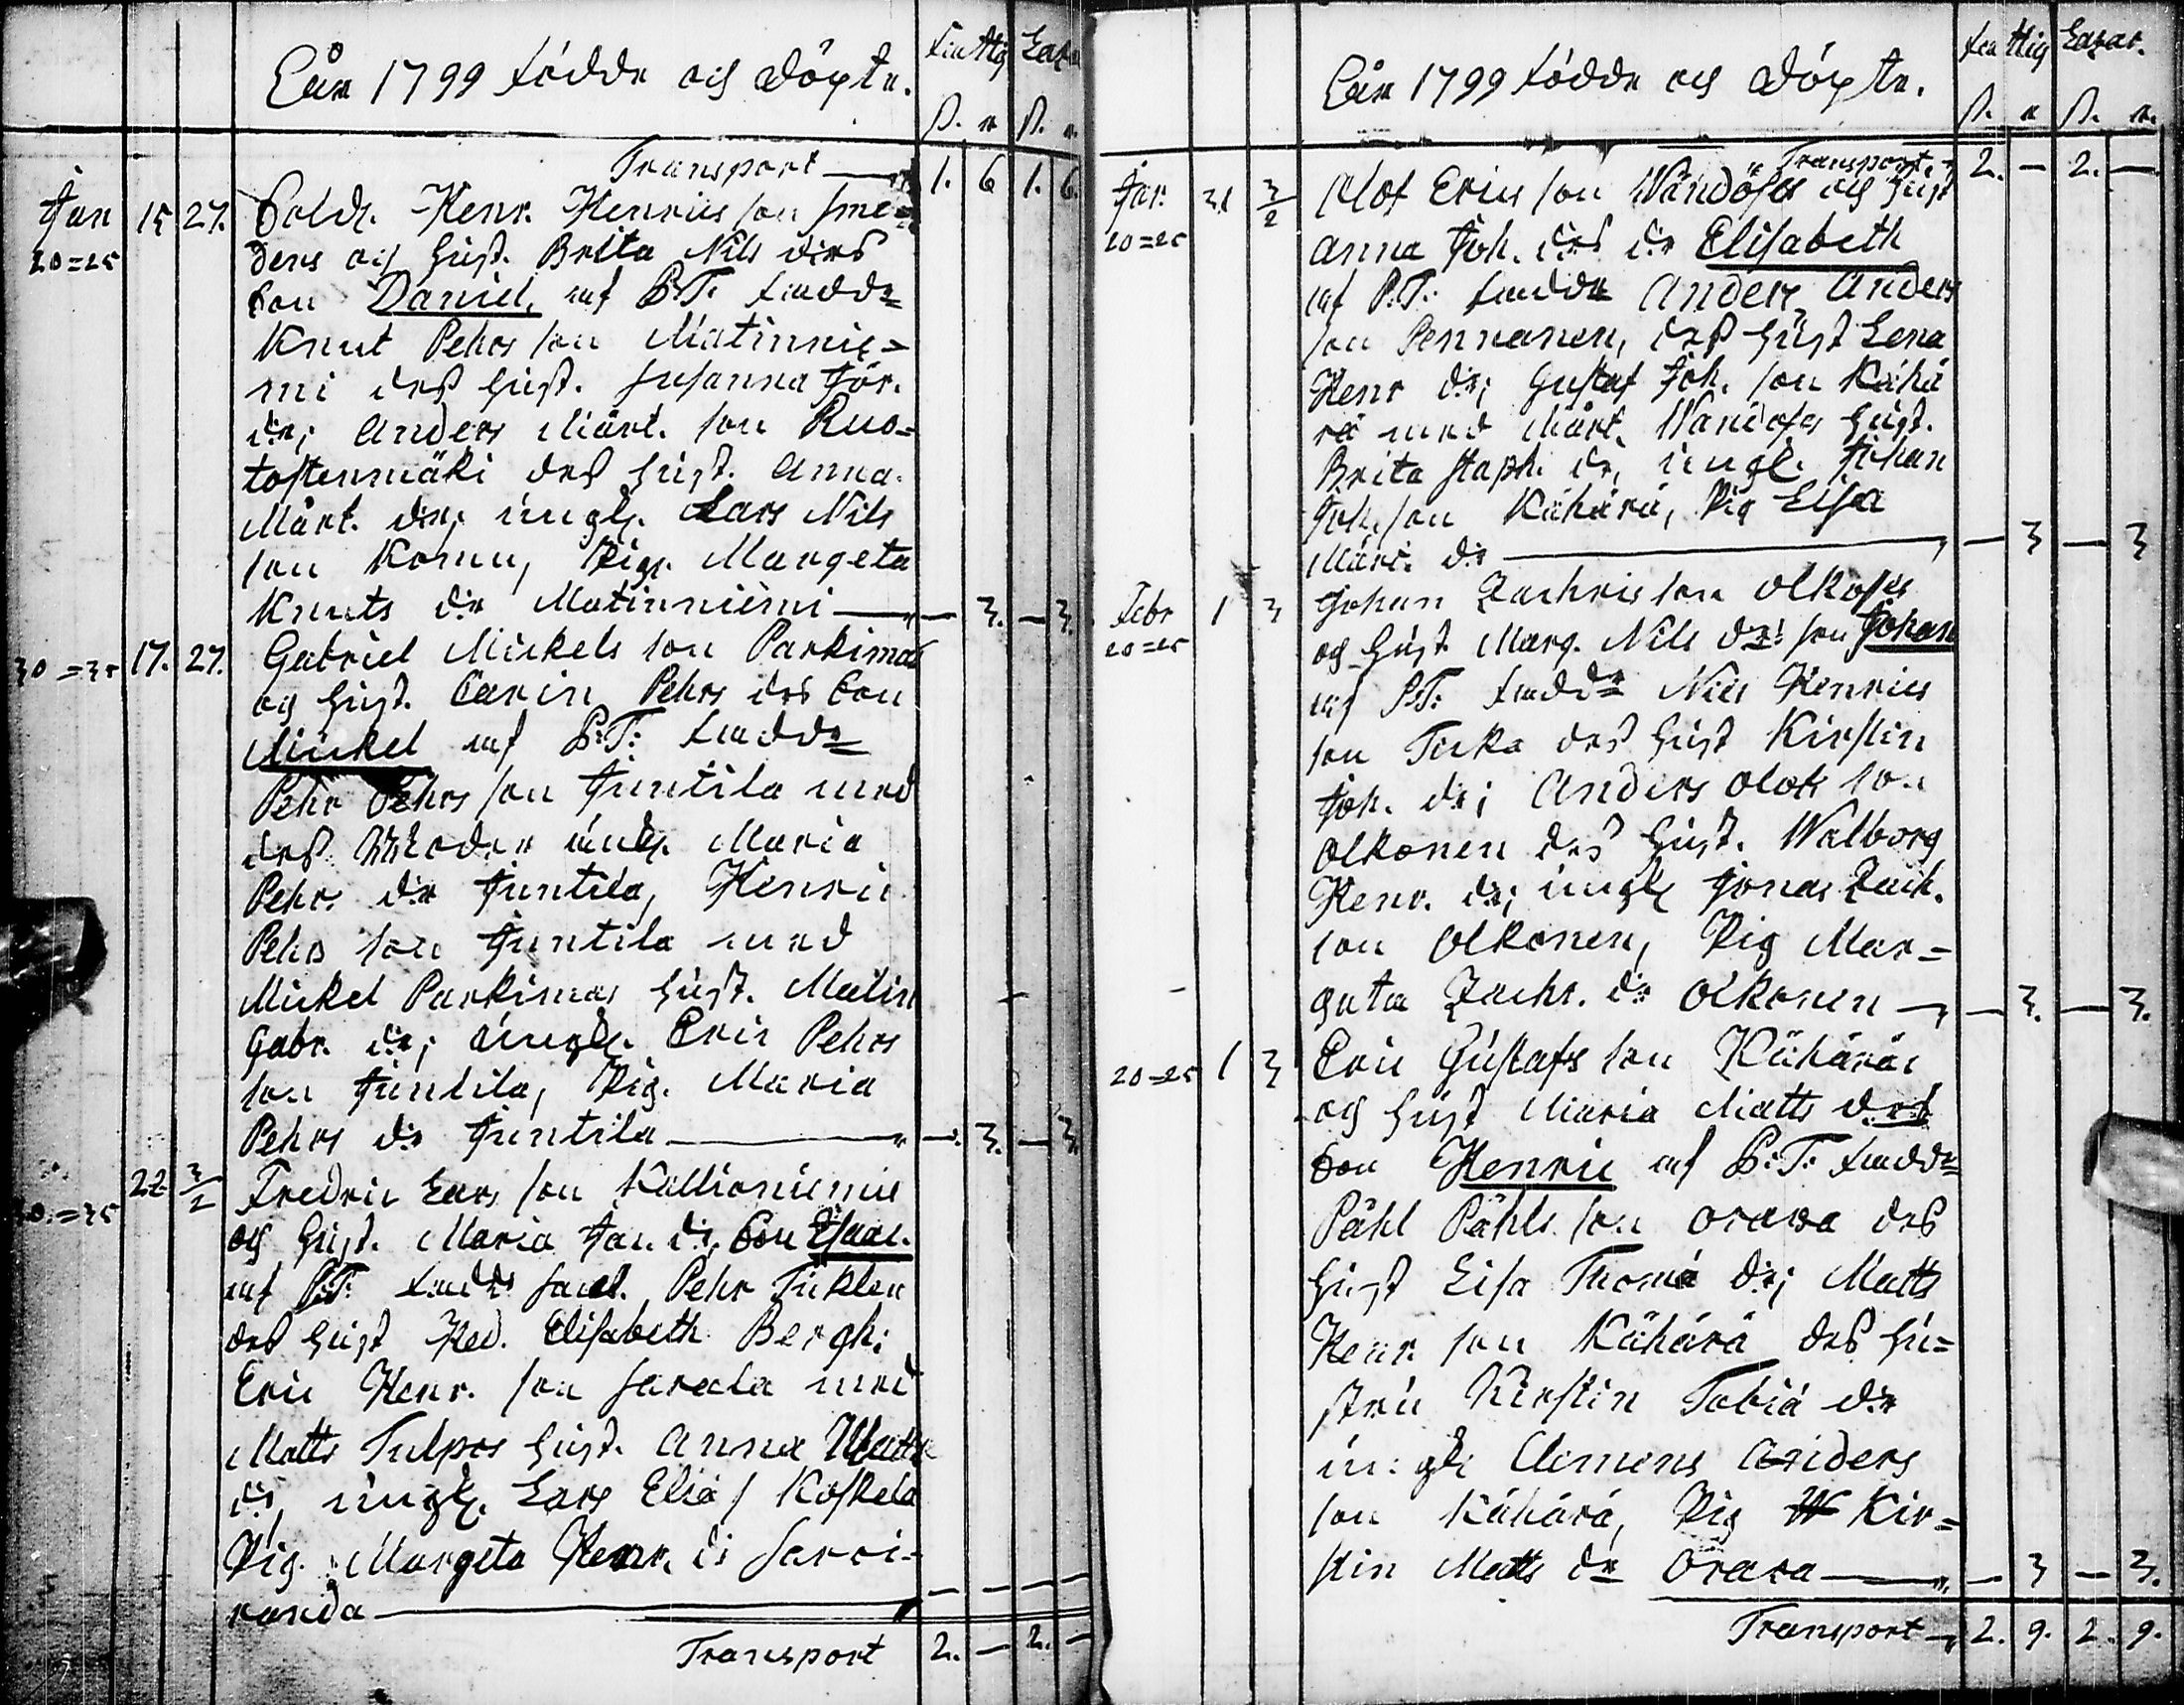 Åhr 1799 födde och döpte.
Fattig Lazar.
ß. r ß. r.
Transport — 1. 6 1. 6.
Jan 15 27. Sold. Henr. Henrics son Sme=
20=25 dens och hust. Brita Nils drs
Son Daniel, af S:T. Fadd:
Knut Pehrs son Matinnie=
mi des hust. Susanna Jör.
dr; Anders Märt. son Ruo=
tostenmäki des hust. Anna
Märt. dr; ungk. Lars Nils
son Komu, Pig. Margeta
Knuts dr Matinniemi — — 3. — 3.
30=35 17. 27. Gabriel Mickels son Parkimas
och hust. Carin Pehrs drs Son
Mickel af S:T: Fadd:
Pehr Pehrs son Juntila med
des Maria
Pehrs dr Juntila, Henric
Pehrs son Juntila med
Mickel Parkimas hust. Malin
Gabr. dr; ungk. Eric Pehrs
son Juntila, Pig. Maria
Pehrs dr Juntila — — 3. — 3.
22 3/2 Fredric Lars son Kallioniemis
30=35 och hust. Maria Jan. dr. Son Isaac.
af S:T. Fadd: Pehr
des hust Hed. Elisabeth Bergh;
Eric Henr. son Sarala med
Matts Tulpos hust. Anna Matts
dr, ungk. Lars Eliæ s Koskela
Pig. Margeta Henr. dr Sarvi=
randa — — — — —
Transport 2. — 2. —
Åhr 1799 födde och döpte.
Fattig Lazar.
ß. r ß. r.
Transport. 2. — 2. —
Jan. 31 3/2 Olof Erics son Wändöfs och hust
20=25 Anna Joh. drs dr Elisabeth
af S:T: Fadd: Anders Anders
son Pennanen, des hust Lena
Henr dr; Gustaf Joh. son Kähä
rä med Märt. Wändöfs hust.
Brita Staph. dr, ungk. Johan
Joh. son Kähärä, Pig Elsa
Märt. dr — — 3 — 3
Febr 1 3 Johan Zachris son Olkoses
20=25 och hust. Marg. Nils dr: son Johan
af S:T: Fadd: Nils Henrics
son des hust Kirstin
Joh. dr; Anders Olofs son
Olkonen des hust. Walborg
Henr. dr; ungk Jonas Zach.
son Olkonen, Pig Mar=
gata Zachr. dr Olkonen — — 3. — 3.
20=25 1 3 Eric Gustafs son Kähäräs
och hust Maria Matts drs
Son Henric af S:T. Fadd:
Påhl Påhls son Orava des
hust Elsa Thomæ dr; Matts
Henr. son Kähärä des hu=
stru Kirstin Tobiæ dr
ungk. Clemens Anders
son Kähärä, Pig Kir=
stin Matts dr Orava — — 3 — 3.
Transport — 2. 9. 2. 9.